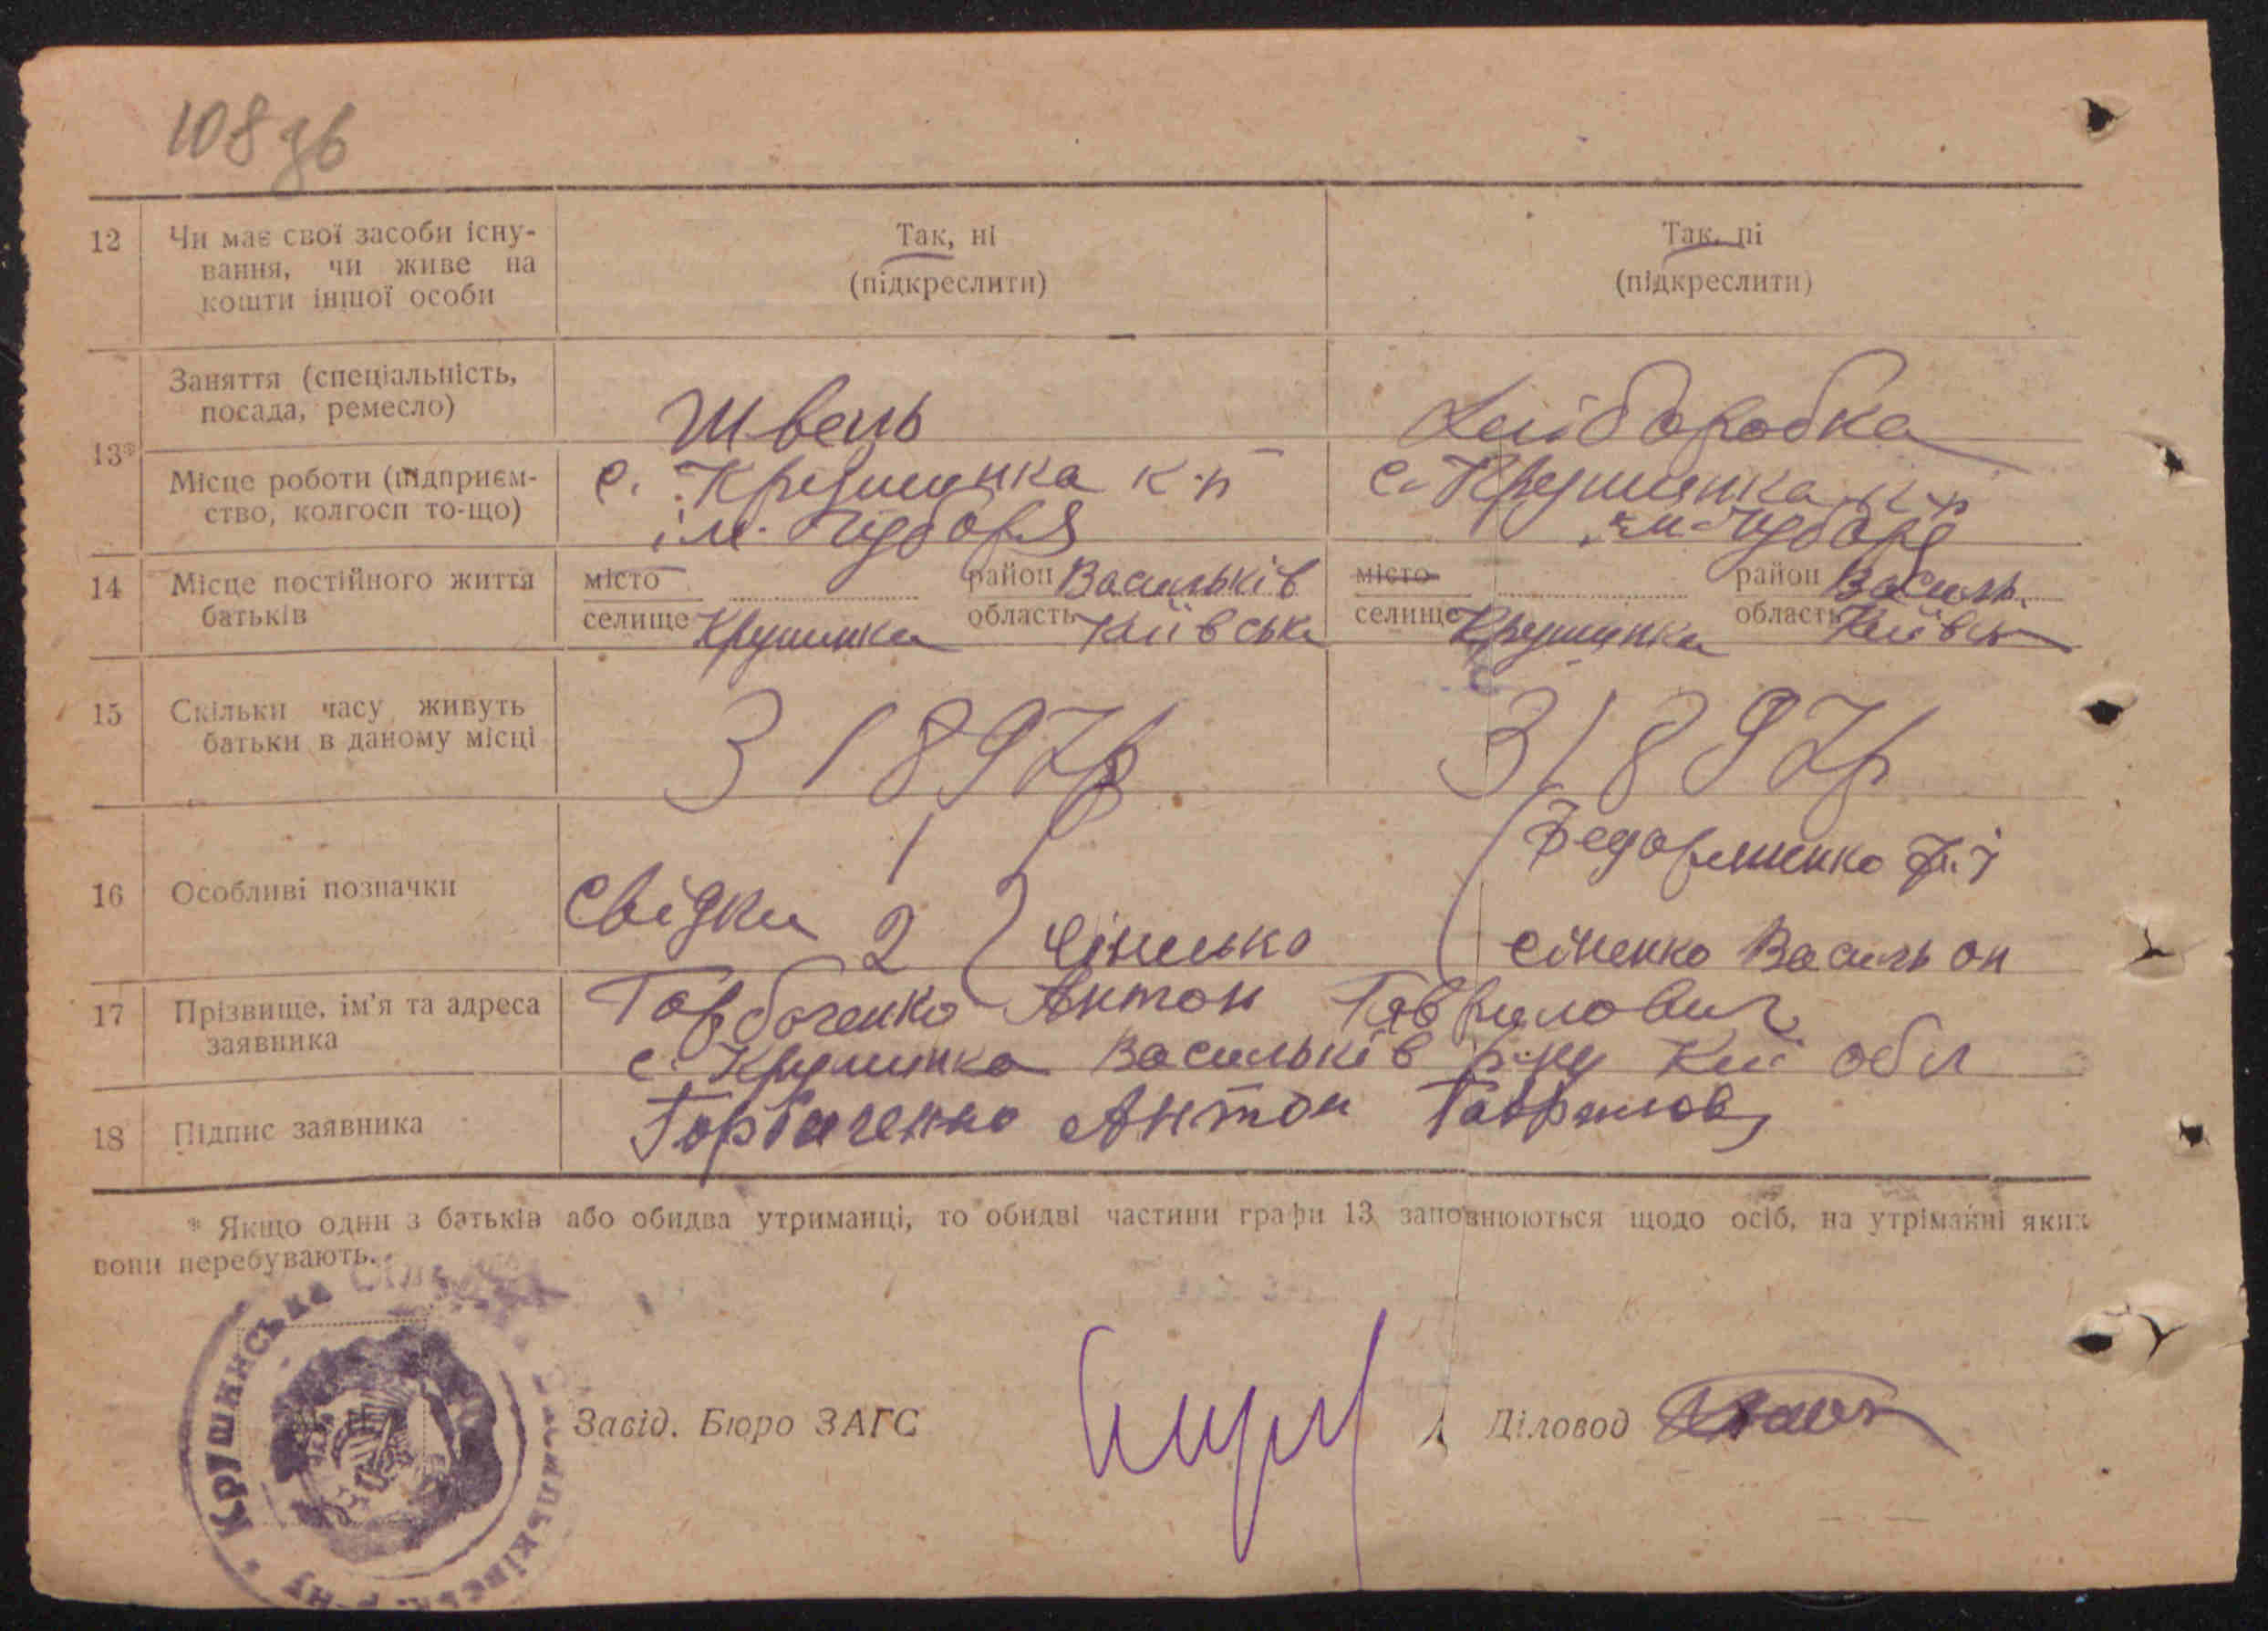 108 зв
12 Чи має свої засоби існу-
вання, чи живе на
кошти іншої особи
Так, ні
(підкреслити)
Так, ні
(підкреслити)
13*
Заняття (спеціальність,
посада, ремесло)
Швець
Хліборобка
Місце роботи (підприєм-
ство, колгосп то-що)
с. Крушинка к-п
ім. Чубаря
с. Крушинка к-п
ім Чубаря
14 Місце постійного життя
батьків
місто район Васильків
селище Крушинка область Київська
місто район Василь.
селище Крушинка область Київськ
15 Скільки часу живуть
батьки в даному місці
З 1897р
З 1897р
16 Особливі позначки
Свідки
1
2
Сіненко
Сіненко Василь
17 Прізвище, ім'я та адреса
заявника
Горбаченко Антон Гаврилович
с. Крушинка Васильків р-ну Киї обл
18 Підпис заявника
Горбаченко Антон Гаврилов
* Якщо один з батьків або обидва утриманці, то обидві частини графи 13 заповнюються щодо осіб, на утріманні яких
вони перебувають.
Крушинська
Васильківськ. р-ну
Завід. Бюро ЗАГС
Діловод